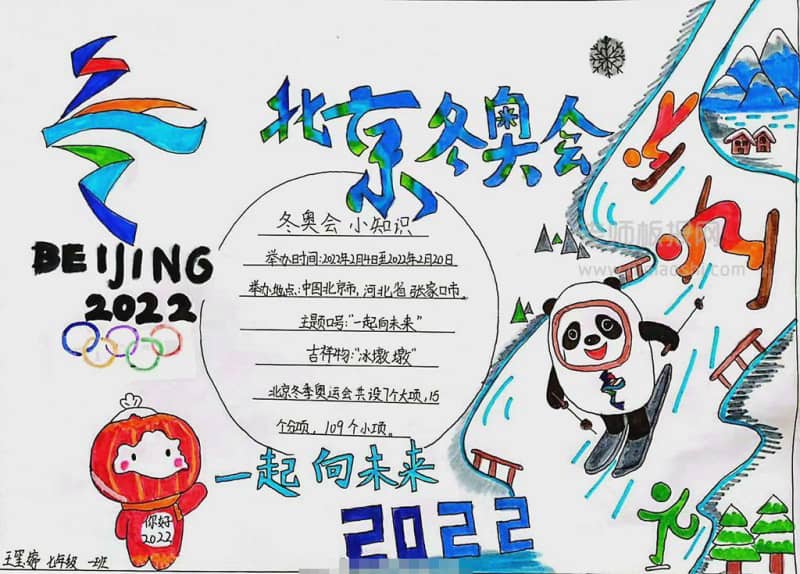 北京冬奥会
BEIJING
2022
冬奥会 小知识
举办时间:2022年2月4日至2022年2月20日
举办地点:中国北京市,河北省张家口市。
主题口号:"一起向未来"
吉祥物:"冰墩墩"
北京冬季奥运会共设7个大项,15
个分项,109个小项。
一起向未来
2022
你好
2022
七年级 一班
师板报网